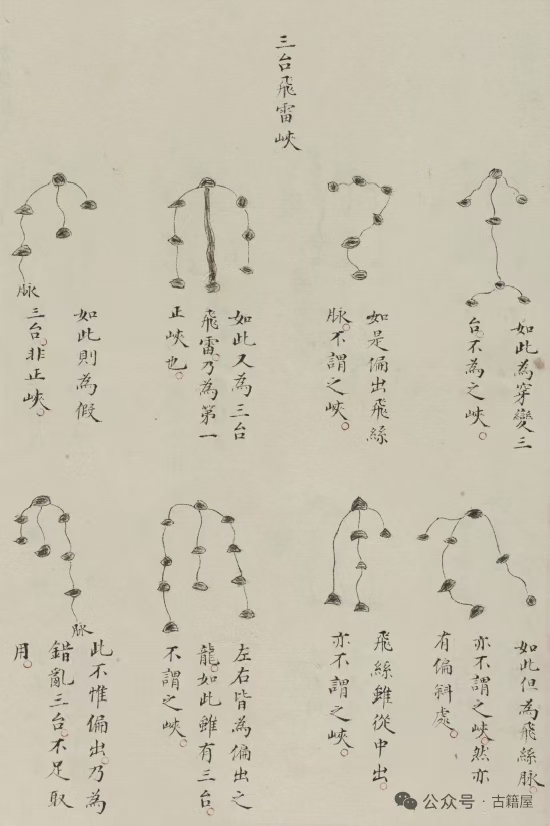 三台飛雷峽
如此為穿變三
台。不為之峽。
如是偏出飛絲
脉。不謂之峽。
如此又為三台
飛雷。乃為第一
正峽也。
如此則為假
三台。非正峽。
脉
如此但為飛絲脉。
亦不謂之峽。然亦
有偏斜處。
飛絲雖從中出。
亦不謂之峽。
左右皆為偏出之
龍。如此雖有三台。
不謂之峽。
此不惟偏出。乃為
錯亂三台。不足取
用。
脉
公众号·古籍屋